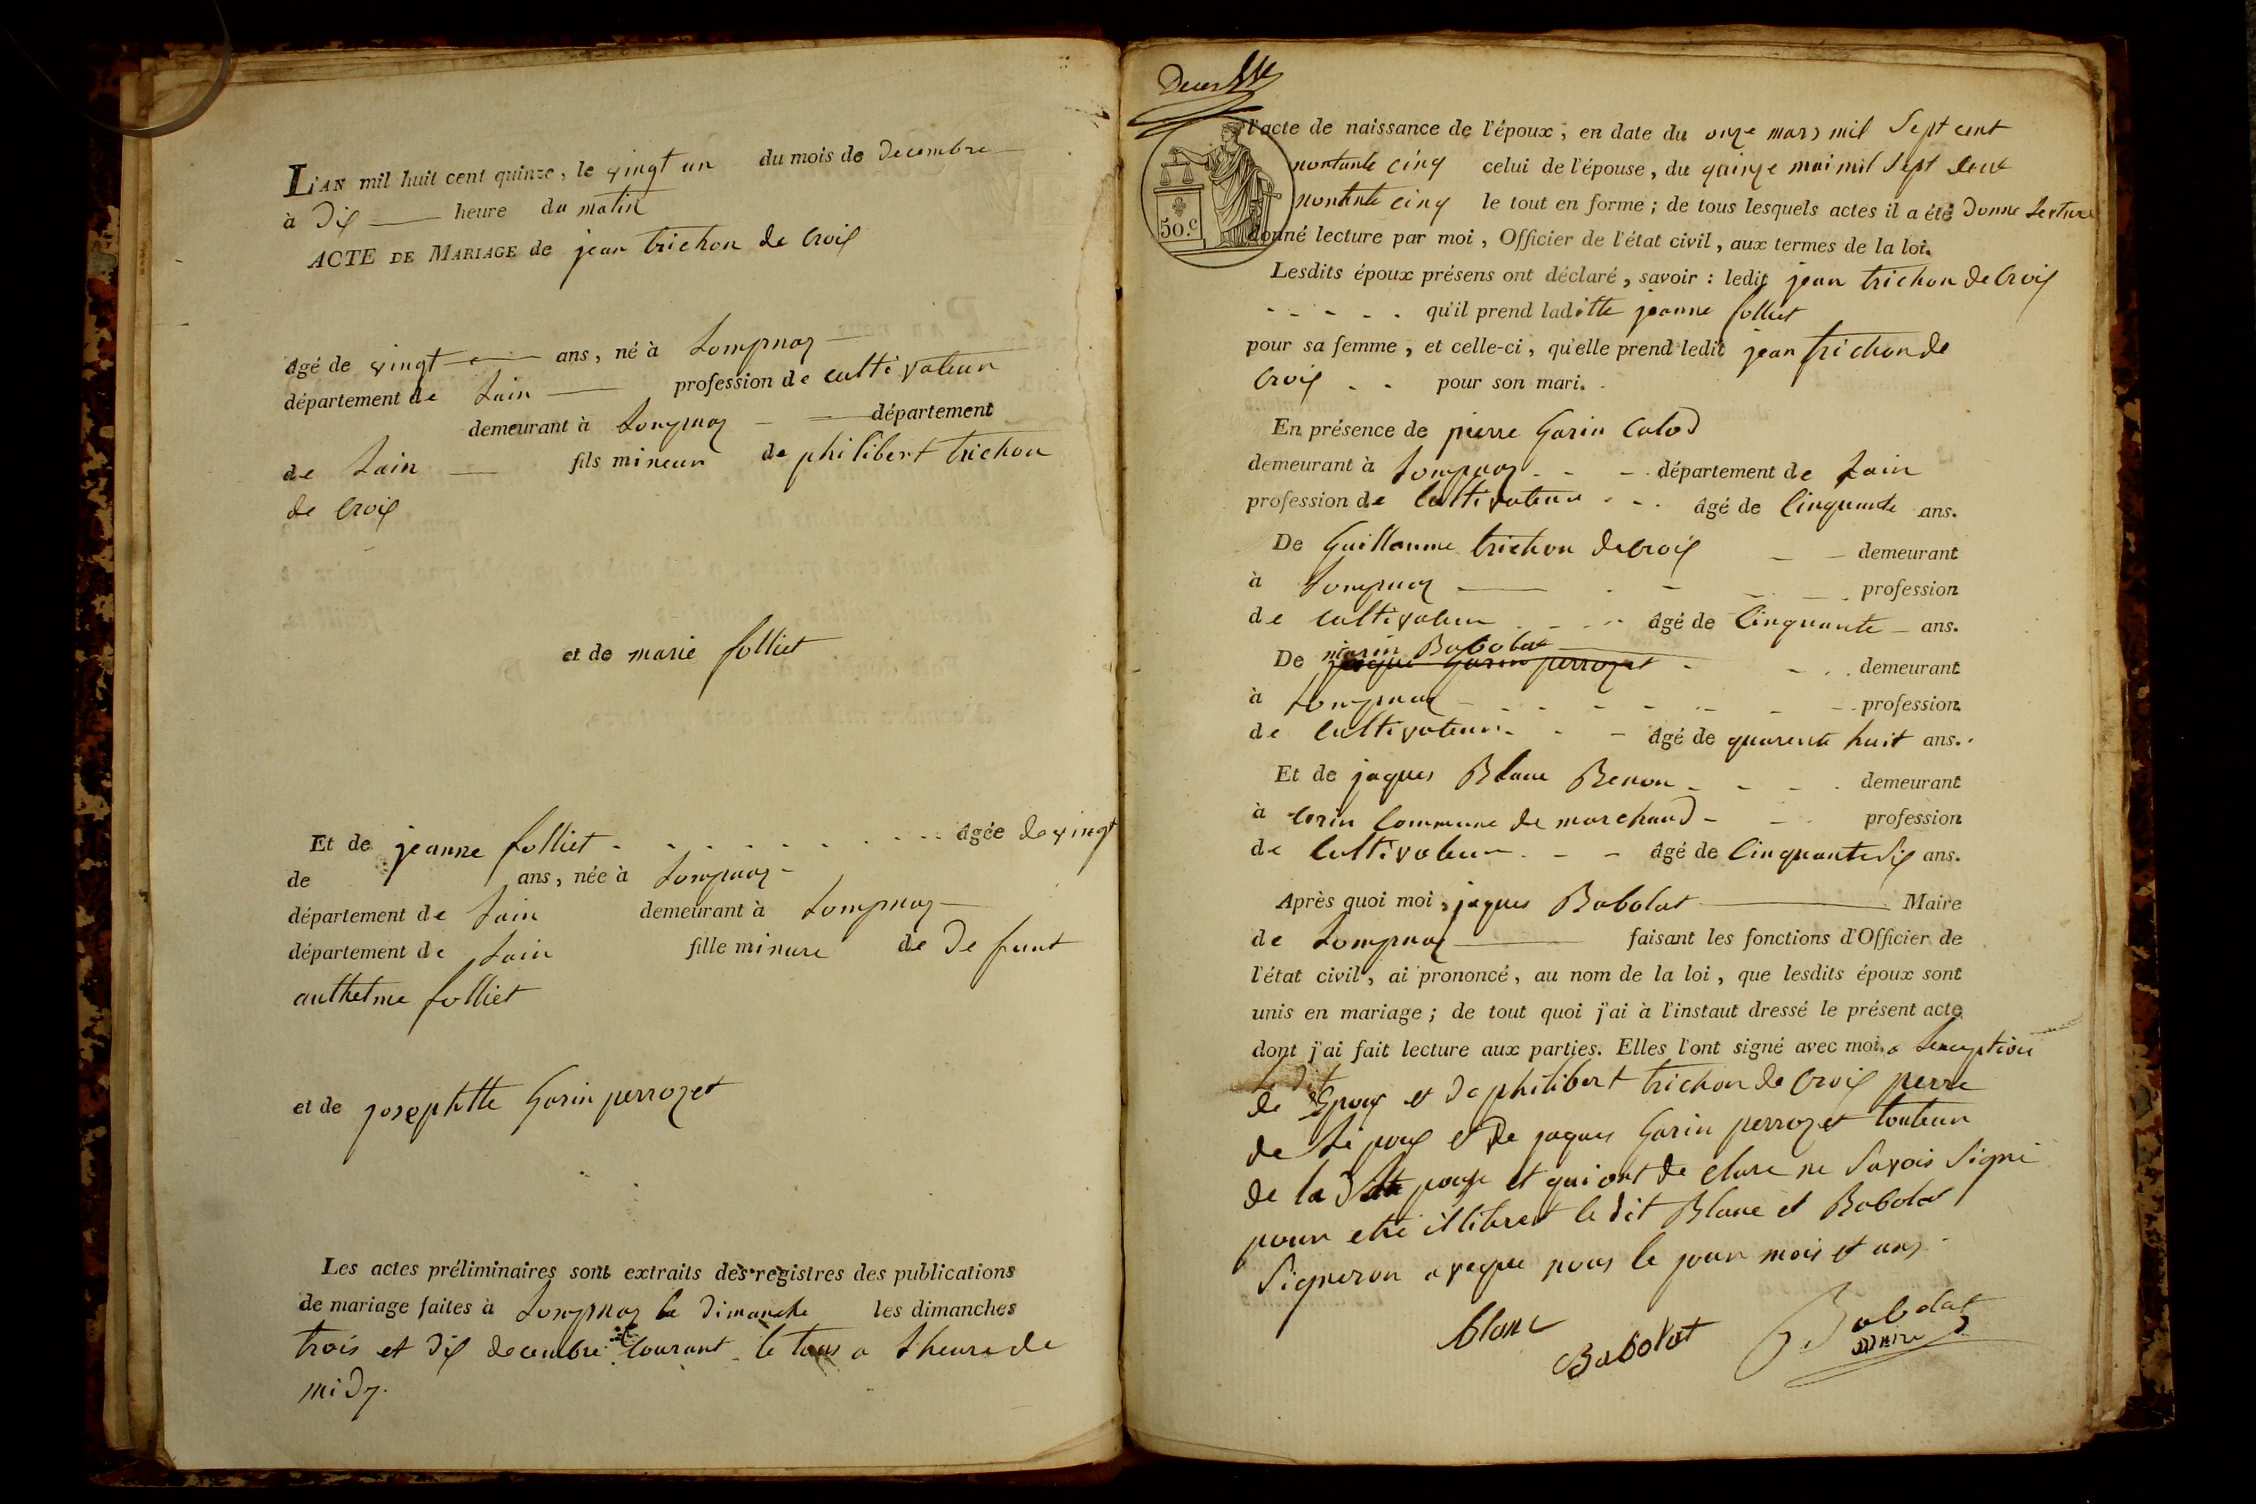 L'AN mil huit cent quinze, le vingt un du mois de decembre
à dix heure du matin
ACTE DE MARIAGE de jean trichon de Croix
âgé de vingt ans, né à Lompnaz
département de Lain profession de cultivateur
demeurant à Lompnaz département
de Lain fils mineur de philibert trichon
de Croix
et de marie folliet
Et de jeanne folliet âgée de vingt
de ans, née à Lompnaz
département de Lain demeurant à Lompnaz
département de Lain fille minure de de funt
anthelme folliet
et de josephtte Garin perrozet
Les actes préliminaires sont extraits des registres des publications
de mariage faites à Lompnaz le dimanche les dimanches
trois et dix decembre courant le tous a Lheure de
midy.
l'acte de naissance de l'époux, en date du onze mars mil Sept cent
nontante cinq celui de l'épouse, du quinze mai mil Sept cent
nontante cinq le tout en forme; de tous lesquels actes il a été donne Lecture
50.c donné lecture par moi, Officier de l'état civil, aux termes de la loi.
Lesdits époux présens ont déclaré, savoir: ledit jean trichon de Croix
qu'il prend laditte jeanne folliet
pour sa femme, et celle-ci, qu'elle prend ledit jean trichon de
Croix pour son mari.
En présence de pierre Garin Calod
demeurant à Lompnaz département de Lain
profession de Cultivateur âgé de Cinquante ans.
De Guillaume trichon de Croix demeurant
à Lompnaz profession
de cultivateur âgé de Cinquante ans.
marin Babolat
De jaque Garin perrozet demeurant
à Lompnaz profession
de Cultivateur âgé de quarente huit ans.
Et de jaques Blanc Benon demeurant
à Cerin Commune de marchand profession
de Cultivateur âgé de Cinquante Six ans.
Après quoi moi, jaques Babolat Maire
de Lompnaz faisant les fonctions d'Officier de
l'état civil, ai prononcé, au nom de la loi, que lesdits époux sont
unis en mariage; de tout quoi j'ai à l'instaut dressé le présent acte
dont j'ai fait lecture aux parties. Elles l'ont signé avec moi. a Lexception
de Epoux et de philibert trichon de Croix perre
de Le poux et de jaques Garin perrozet touteur
de la pouse et qui ont de clare ne Savois Signe
pour etre illitered le dit Blanc et Babolat
Signeron aveque nous le jour mois et ans
blanc
Babolat
Babolat
maire